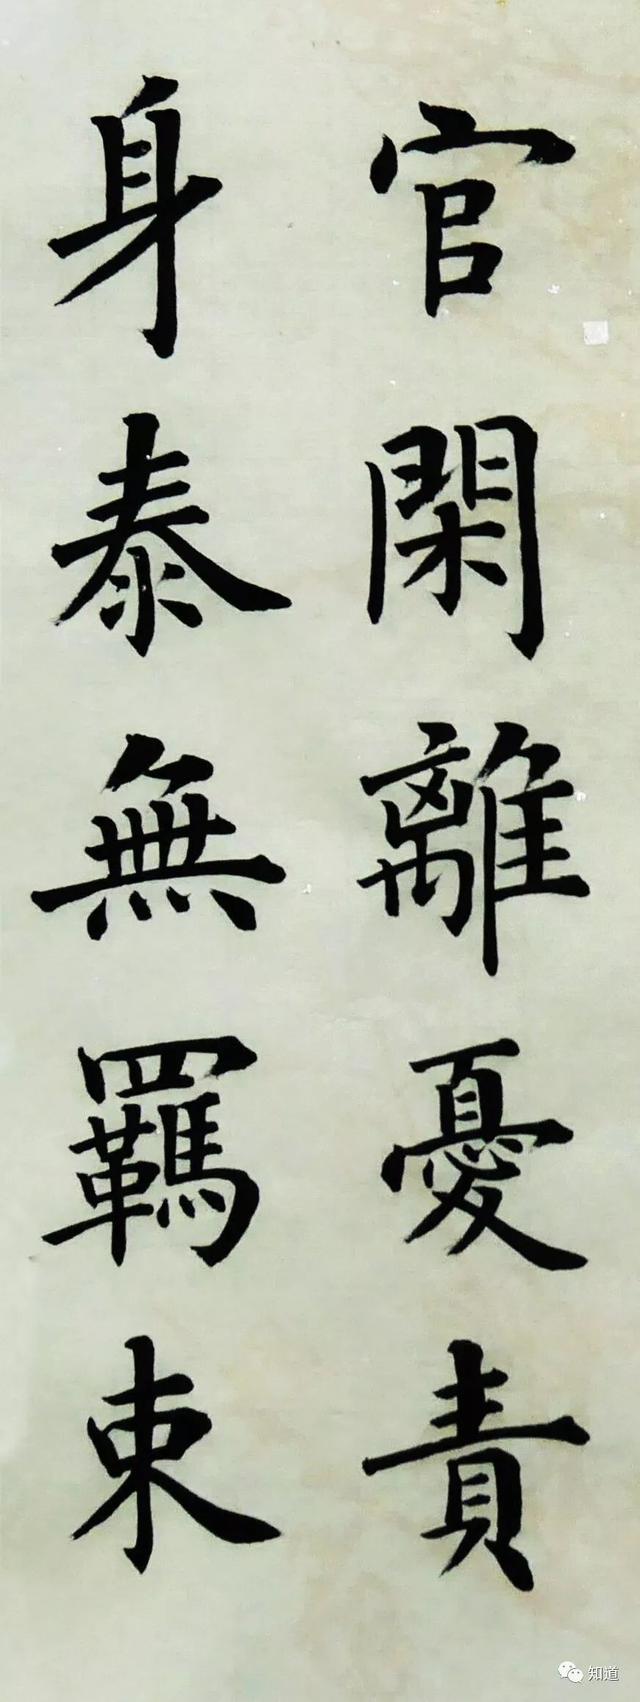 官閑離憂責
身泰無羈束
知道